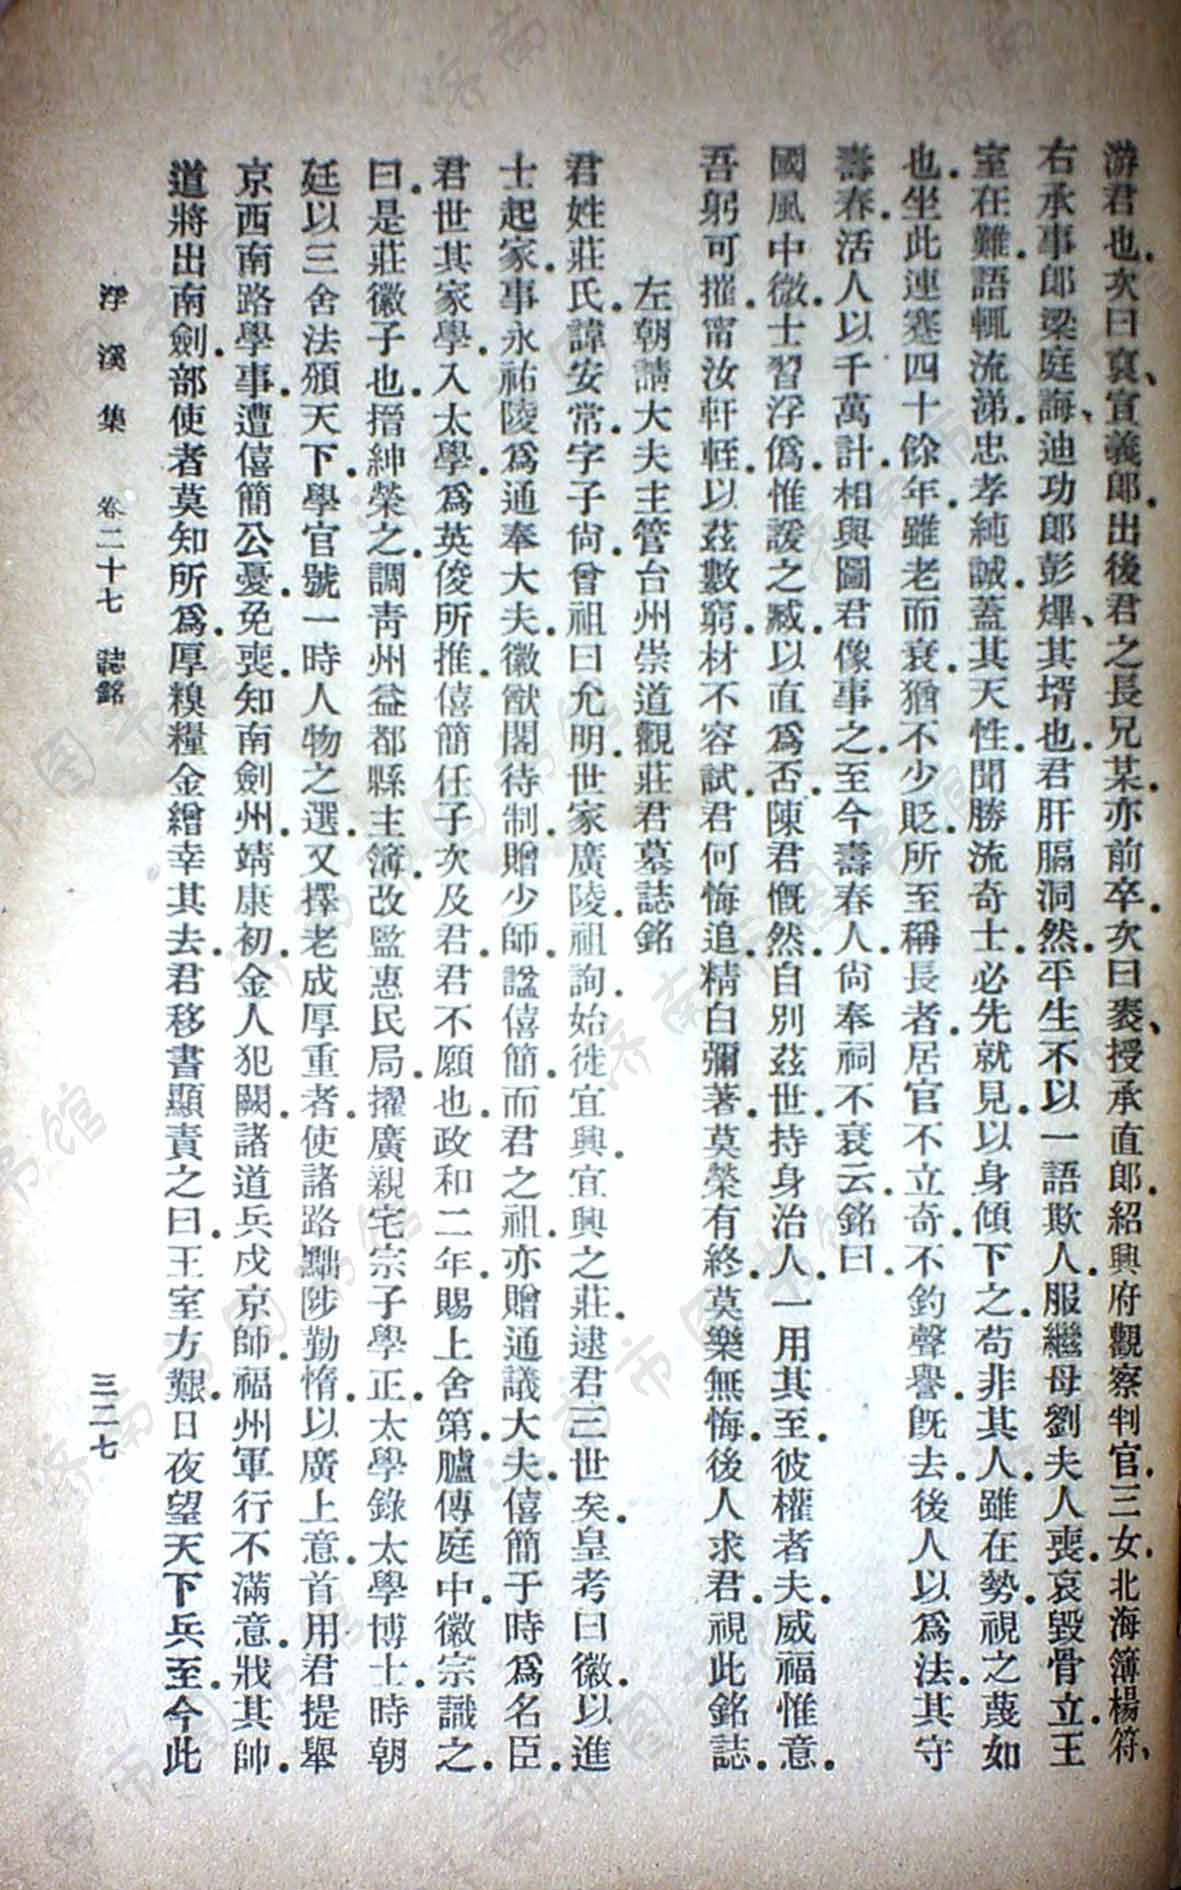 游君也。次曰裒、宣義郎。出後君之長兄某。亦前卒。次曰袤、授承直郎。紹興府觀察判官。三女。北海簿楊符、
右承事郎梁庭誨、迪功郎彭爗、其壻也。君肝膈洞然。平生不以一語欺人。服繼母劉夫人喪。哀毀骨立。王
室在難。語輒流涕。忠孝純誠。蓋其天性。聞勝流奇士。必先就見。以身傾下之。苟非其人。雖在勢。視之蔑如
也。坐此連蹇四十餘年。雖老而衰。猶不少貶。所至稱長者。居官不立奇。不釣聲譽。旣去。後人以爲法。其守
壽春。活人以千萬計。相與圖君像事之。至今壽春人。尙奉祠不衰云。銘曰。
國風中微。士習浮僞。惟諼之臧。以直爲否。陳君慨然。自別茲世。持身治人。一用其至。彼權者夫。威福惟意。
吾躬可摧。甯汝軒輊。以茲數窮。材不容試。君何悔追。精白彌著。莫榮有終。莫樂無悔。後人求君。視此銘誌。
左朝請大夫主管台州崇道觀莊君墓誌銘
君姓莊氏。諱安常。字子尙。曾祖曰允明。世家廣陵。祖詢。始徙宜興。宜興之莊。逮君三世矣。皇考曰徽。以進
士起家。事永祐陵。爲通奉大夫。徽猷閣待制。贈少師。諡僖簡。而君之祖。亦贈通議大夫。僖簡于時爲名臣。
君世其家學。入太學。爲英俊所推。僖簡任子。次及君。君不願也。政和二年。賜上舍第。臚傳庭中。徽宗識之。
曰。是莊徽子也。搢紳榮之。調靑州益都縣主簿。改監惠民局。擢廣親宅宗子學正。太學錄。太學博士。時朝
廷以三舍法頒天下。學官號一時人物之選。又擇老成厚重者。使諸路黜陟勤惰。以廣上意。首用君提舉
京西南路學事。遭僖簡公憂。免喪。知南劍州。靖康初。金人犯闕。諸道兵戍京師。福州軍行不滿意。戕其帥。
道將出南劍。部使者莫知所爲。厚糗糧金繒。幸其去。君移書顯責之曰。王室方艱。日夜望天下兵至。今此
浮溪集 卷二十七 誌銘 三二七